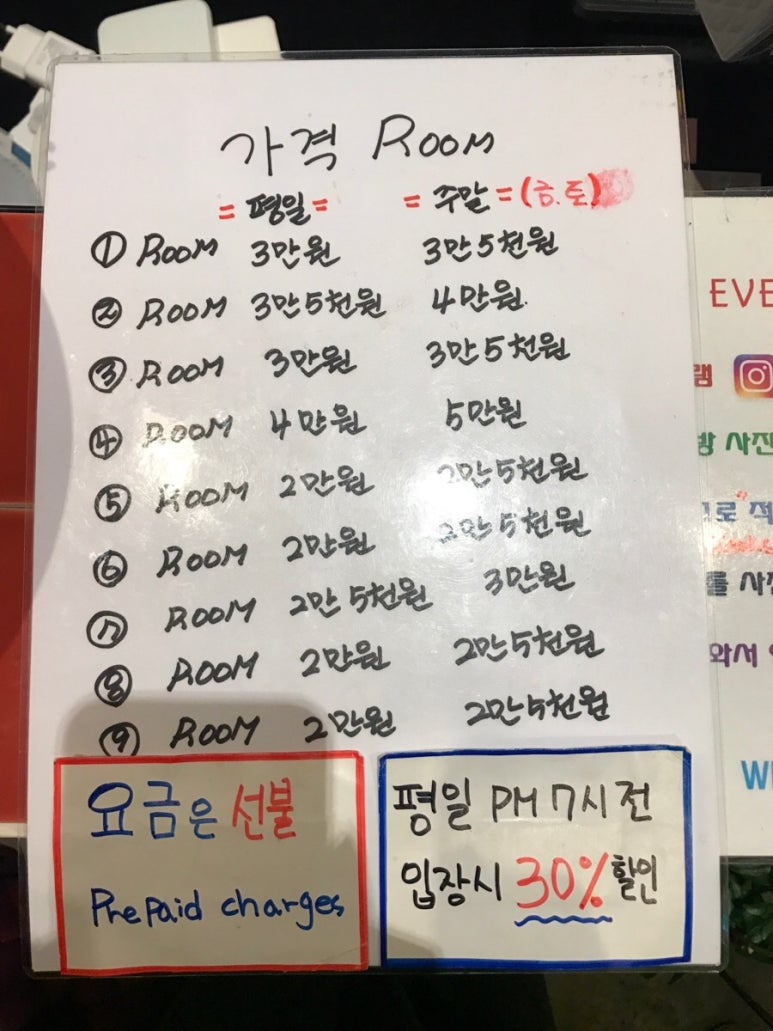 가격 ROOM
= 평일 = = 주말 = (금.토)
① ROOM 3만원 3만5천원
② ROOM 3만5천원 4만원
③ ROOM 3만원 3만5천원
④ ROOM 4만원 5만원
⑤ ROOM 2만원 2만5천원
⑥ ROOM 2만원 2만5천원
⑦ ROOM 2만5천원 3만원
⑧ ROOM 2만원 2만5천원
⑨ ROOM 2만원 2만5천원
요금은 선불
Prepaid charges
평일 PM 7시 전
입장시 30% 할인
EVE
램
방 사진
로" 적
를 사진
와서